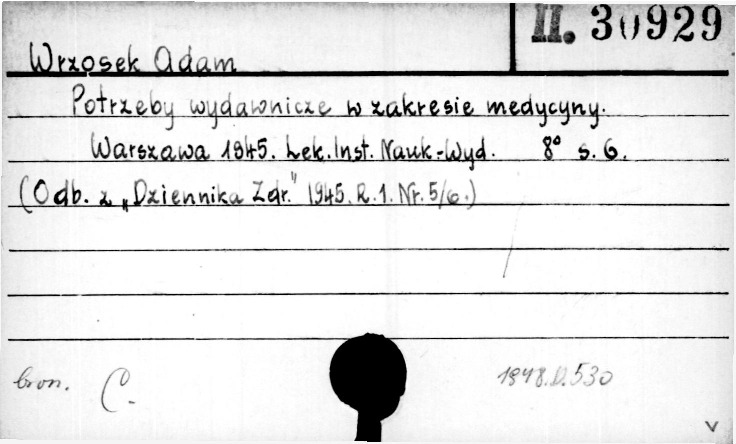 II. 30929
Wrzosek Adam
Potrzeby wydawnicze w zakresie medycyny.
Warszawa 1945. Lek. Inst. Nauk.-Wyd. 8° s. 6.
(Odb. z „Dziennika Zdr." 1945. R. 1. Nr. 5/6.)
bron. C.
1948.D.530
V